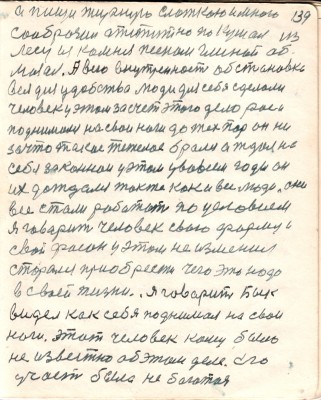 и пищи жирную сладкою и много 139
сообрази апититно покушал из
лесу из камня песком глиной об
мазал. А всю внутренност обстановка
вся для удобства люди для себя сделали
человек у этом за счет этого дело рос и
поднимали на свои ноги до тех пор он ни
за что такое тяжелое брался а ждал на
себя законном у этом уповоем годы он
их дождался так то как и все люди, они
все стали работать по условием
Я говарит человек свою форму и
свой фасон у этом не изменил
старался приобрести чего это надо
в своей жизни.. Я говарит Бык
видел как себя поднимал на свои
ноги. Этот человек кому было
не известно об этом деле. Его
участ была не богатая